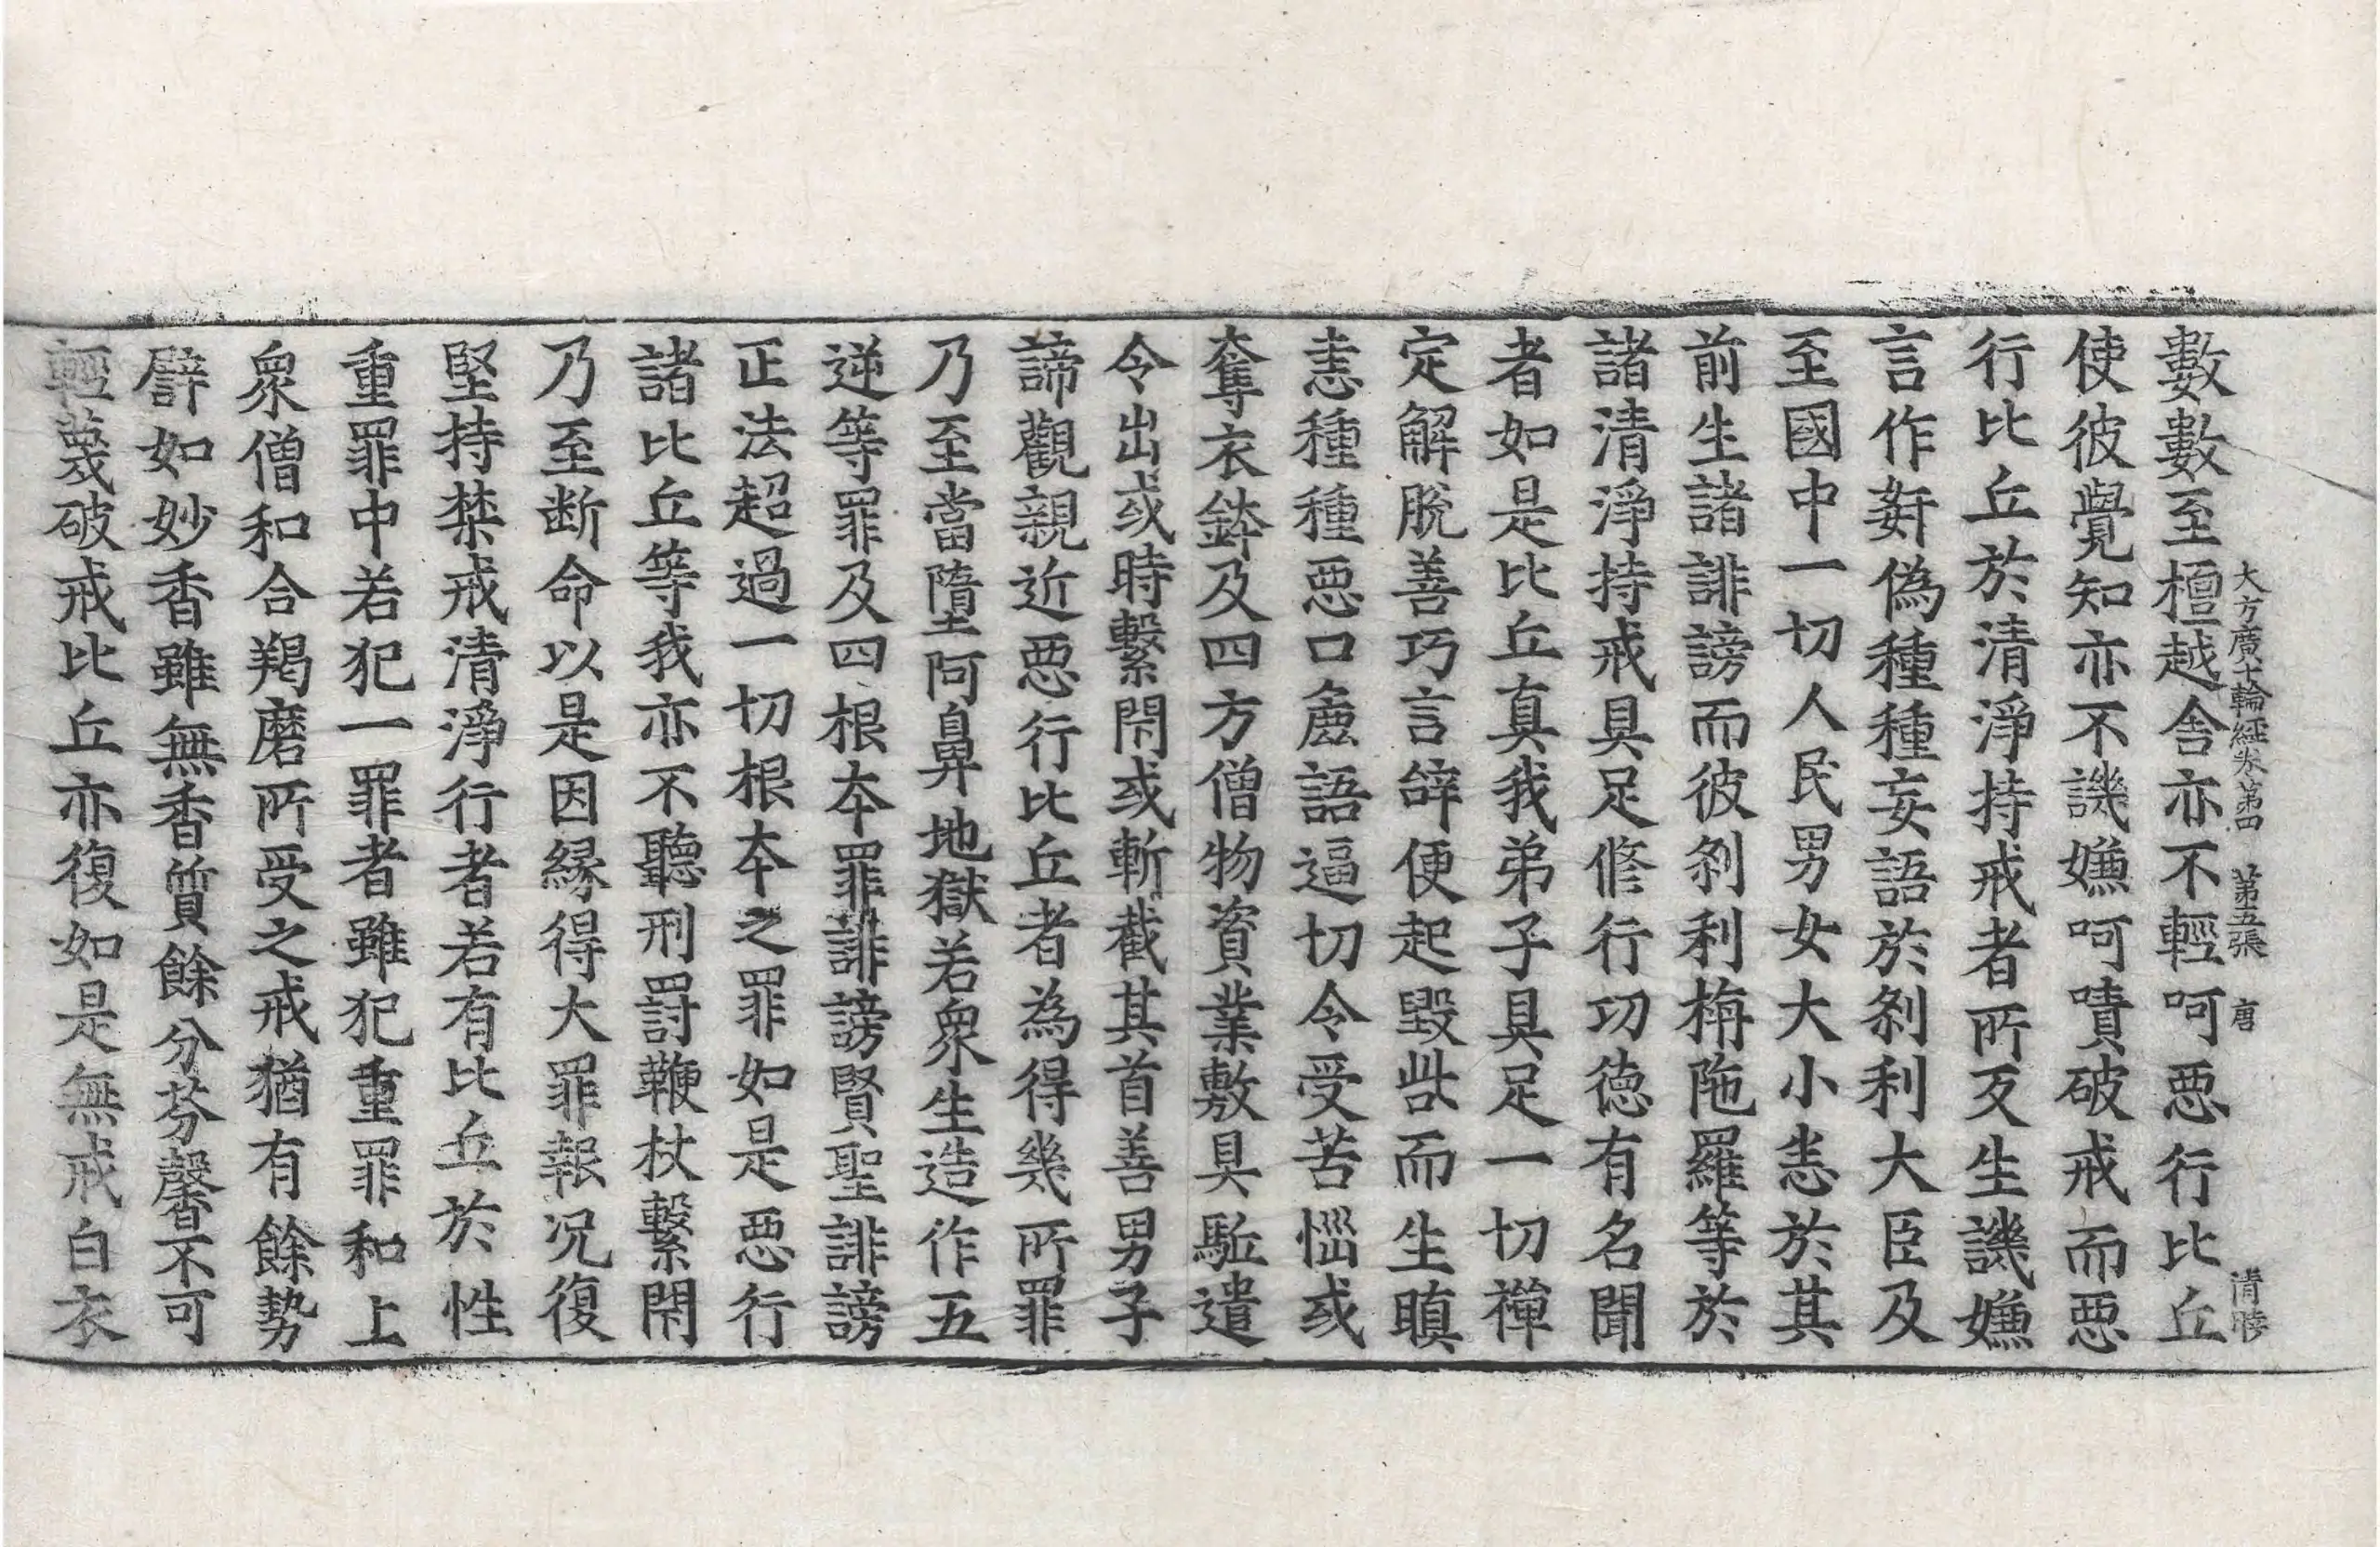 大方廣十輪經卷第四　第五張　唐　清睦
數數至檀越舎亦不輕呵惡行比丘
使彼覺知亦不譏嫌呵嘖破戒而惡
行比丘於清淨持戒者所反生譏嫌
言作姧偽種種妄語於刹利大臣及
至國中一切人民男女大小恚於其
前生諸誹謗而彼刹利栴陁羅等於
諸清淨持戒具足修行功徳有名聞
者如是比丘真我弟子具足一切禪
定解脫善巧言辝便起毀呰而生瞋
恚種種惡口麁語逼切令受苦惱或
奪衣鉢及四方僧物資業敷具駈遣
令出或時繫閇或斬截其首善男子
諦觀親近惡行比丘者為得幾所罪
乃至當墮阿鼻地獄若衆生造作五
逆等罪及四根夲罪誹謗賢聖誹謗
正法超過一切根夲之罪如是惡行
諸比丘等我亦不聽刑罰鞭杖繫閇
乃至断命以是因縁得大罪報况復
堅持禁戒清淨行者若有比丘於性
重罪中若犯一罪者雖犯重罪和上
衆僧和合羯磨所受之戒猶有餘勢
譬如妙香雖無香質餘分芬馨不可
輕蔑破戒比丘亦復如是無戒白衣